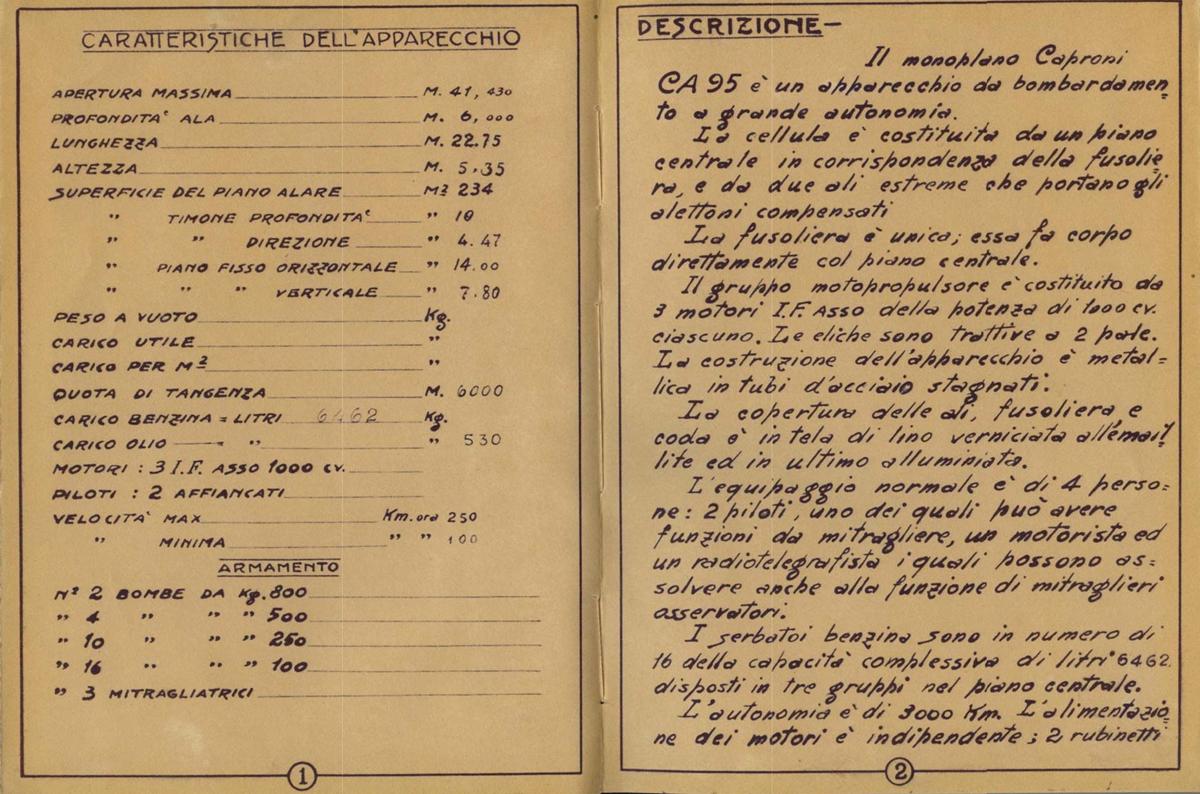 CARATTERISTICHE DELL'APPARECCHIO
APERTURA MASSIMA M. 41,430
PROFONDITA' ALA M. 6,000
LUNGHEZZA M. 22.75
ALTEZZA M. 5,35
SUPERFICIE DEL PIANO ALARE M² 234
" TIMONE PROFONDITA' " 10
" " DIREZIONE " 4.47
" PIANO FISSO ORIZZONTALE " 14.00
" " " VERTICALE " 7.80
PESO A VUOTO Kg.
CARICO UTILE "
CARICO PER M² "
QUOTA DI TANGENZA M. 6000
CARICO BENZINA = LITRI 6462 Kg.
CARICO OLIO — " " 530
MOTORI : 3 I.F. ASSO 1000 CV.
PILOTI : 2 AFFIANCATI
VELOCITA' MAX Km. ora 250
" MINIMA " " 100
ARMAMENTO
N° 2 BOMBE DA Kg. 800
" 4 " " " 500
" 10 " " " 250
" 16 " " " 100
" 3 MITRAGLIATRICI
1
DESCRIZIONE—
Il monoplano Caproni
CA 95 è un apparecchio da bombardamen=
to a grande autonomia.
La cellula è costituita da un piano
centrale in corrispondenza della fusolie=
ra, e da due ali estreme che portano gli
alettoni compensati
La fusoliera è unica; essa fa corpo
direttamente col piano centrale.
Il gruppo motopropulsore è costituito da
3 motori I.F. Asso della potenza di 1000 cv.
ciascuno. Le eliche sono trattive a 2 pale.
La costruzione dell'apparecchio è metal=
lica in tubi d'acciaio stagnati.
La copertura delle ali, fusoliera, e
coda è in tela di lino verniciata all'email=
lite ed in ultimo alluminiata.
L'equipaggio normale è di 4 perso=
ne: 2 piloti, uno dei quali può avere
funzioni da mitragliere, un motorista ed
un radiotelegrafista i quali possono as=
solvere anche alla funzione di mitraglieri
osservatori.
I serbatoi benzina sono in numero di
16 della capacità complessiva di litri 6462
disposti in tre gruppi nel piano centrale.
L'autonomia è di 3000 Km. L'alimentazio=
ne dei motori è indipendente; 2 rubinetti
2